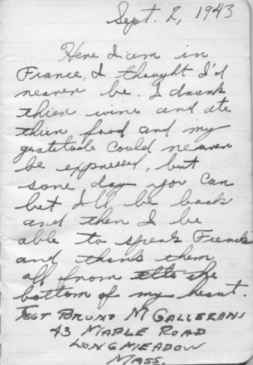 Sept. 2, 1943
Here I am in
France, I thought I'd
nearver be. I drank
thier wine and ate
thier food and my
gratitude could nearver
be expressed, but
some day you can
bet I'll be back
and then I be
able to speak French
and thank them
all from the
bottom of my heart.
TSGT BRUNO M GALLERANI
43 MAPLE ROAD
LONGMEADOW
MASS.